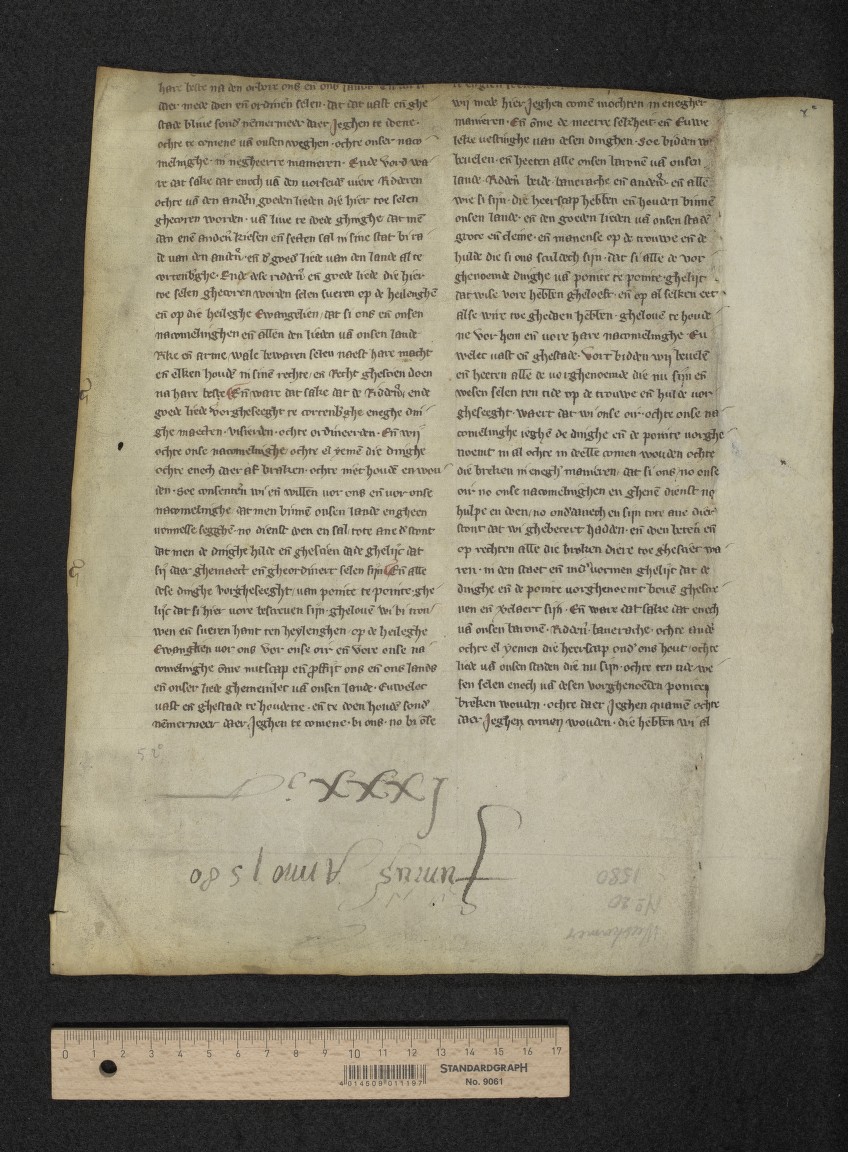 hare beste na den orbore ons en̄ ons lands
daer mede doen en̄ ordinerē selen · dat dat vast en̄ ghe
stade bliue sond' nēmermeer daer Jeghen te doene ·
ochte te comene vā onsen weghen · ochte onser naco
melinghe · in negheerre manieren · Ende vord wa
re dat sake dat enech vā den vorseide viere Ridderen
ochte vā den anderē goeden lieden die hier toe selen
ghecoren worden · vā liue te dode ghinghe dat mē
den enē anderē kiesen en̄ setten sal in sine stat bi ra
de van den anderē · en̄ d' goed' liede van den lande al te
cortenb'ghe · Ende dese ridderē en̄ goede liede die hier
toe selen ghecoren worden selen sueren op de heileghē
en̄ op die heileghe Ewangelien / dat si ons en̄ onsen
nacomelinghen en̄ allen den lieden vā onsen lande
Rike en̄ arme, wale bewaren selen naest hare macht
en̄ elken houdē in sinē rechte / en̄ Recht ghescien doen
na hare beste En̄ ware dat sake dat de Ridderē, ende
goede liede vorgheseeght te cortenb'ghe eneghe din
ghe maecten · visierden · ochte ordineerden · En̄ wij
ochte onse nacomelinghe / ochte el yemē die dinghe
ochte enech daer af braken · ochte niet houdē en wou
den · Soe consenterē wi en̄ willen vor ons en̄ vor onse
nacomelinghe dat men binnē onsen lande engheen
vonnesse segghē · no dienst doen en sal tote anc d' stont
dat men de dinghe hilde en̄ ghescien dade ghelijc dat
sij daer ghemaect en̄ gheordinert selen sijn En̄ alle
dese dinghe vorgheseeght / van pointe te pointe · ghe
lijc dat si hier vore bescreuen sijn · ghelouē wi bi trou
wen en̄ sueren hant ten heylenghen op de heileghe
Ewangelien vor ons vor onse oir en̄ vore onse na
comelinghe ōme nutscap en̄ p̄ffijt ons en̄ ons lands
en̄ onser liede ghemeinlec vā onsen lande · Euweloc
vast en̄ ghestade te houdene · en̄ te doen houdē sond'
nēmermeer daer Jeghen te comene · bi ons · no bi ōse
wij mede hier Jeghen comē mochten in enegher
manieren · En̄ ōme de meerre sekerheit en̄ Euwe
leke vestinghe van desen dinghen · Soe bidden w
beuelen · en̄ heeten alle onsen baronē vā onsen
lande · Ridderē beide · banerache en̄ anderē · en̄ allē
wie si sijn · die heerscap hebbē en̄ houden binnē
onsen lande · en̄ den goeden lieden vā onsen stadē
grote en̄ cleine · en̄ manense op de trouwe en̄ de
hulde die si ons sculdech sijn · dat si alle de vor
ghenoemde dinghe vā pointe te pointe · ghelijc
dat wise vore hebbē gheloeft · en̄ op al selken eet
alse wire toe ghedaen hebbē · ghelouē te houde
ne vor hem en̄ vore hare nacomelinghe · Eu
welec vast en̄ ghestade · vort bidden wij beuelē
en̄ heeren alle de vorghenoemde die nu sijn en̄
wesen selen ten tide op de trouwe en̄ hulde vor
gheseeght · waert dat wi onse oir · ochte onse na
comelinghe ieghē de dinghe en̄ de pointe vorghe
noemt in al ochte in deelle comen wouden ochte
die breken in enegh' manieren / dat si ons · no onse
oir no onse nacomelinghen en ghenē dienst no
hulpe en doen / no ond'danech en sijn tote anc dier
stont dat wi ghebetert hadden · en̄ doen beterē en̄
op rechten alle die broken diere toe ghesciet wa
ren · in den staet en̄ ind' vormen ghelijc dat de
dinghe en̄ de pointe vorghenoemt bouē ghescre
uen en̄ v'claert sijn · En̄ ware dat sake dat enech
vā onsen baronē · Ridderē banerache · ochte andē
ochte el yemen die heerscap ond' ons heut / ochte
liede vā onsen steden die nu sijn · ochte ten tide we
sen selen enech vā desen vorghenoēden pointen
breken wouden · ochte daer Jeghen quamē ochte
daer Jeghen comen wouden · die hebbē wi al
52°
LXXX
Junius Anno 1580
1580
No 20
STANDARDGRAPH
No. 9061
4 014509 011197
0 1 2 3 4 5 6 7 8 9 10 11 12 13 14 15 16 17